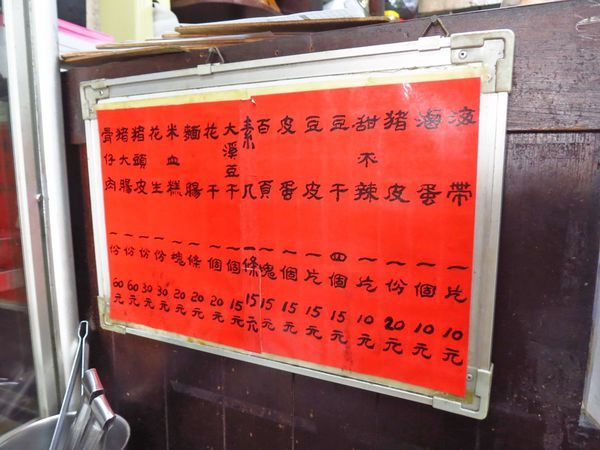 海帶 一片 10元
滷蛋 一個 10元
豬皮 一份 20元
甜不辣 一片 10元
豆干 四個 15元
豆皮 一片 15元
皮蛋 一個 15元
百頁 一塊 15元
素几 一條 15元
大溪豆干 一個 15元
花干 一個 20元
麵腸 一條 20元
米血糕 一塊 20元
花生 一份 30元
豬頭皮 一份 30元
豬大腸 一份 60元
骨仔肉 一份 60元